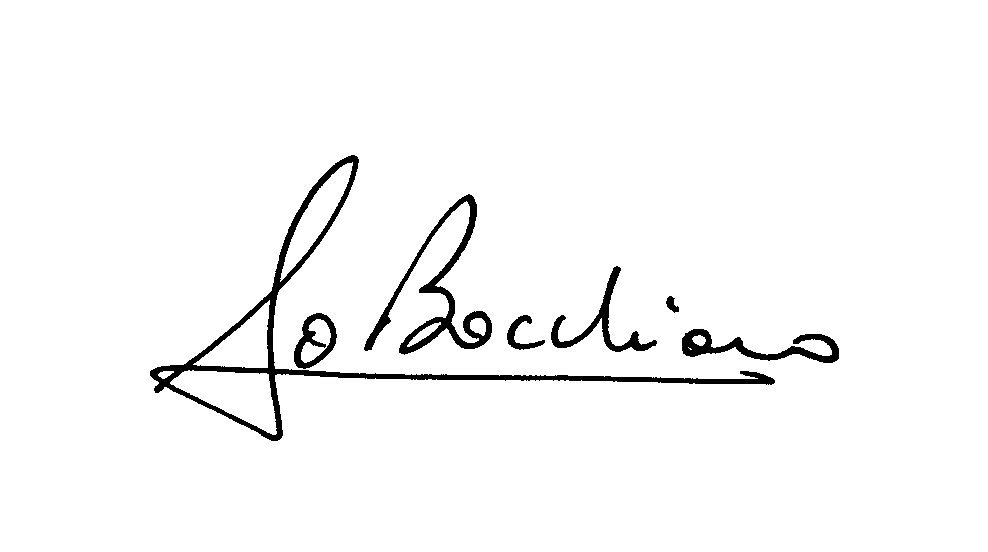 Jo Bocchiaro